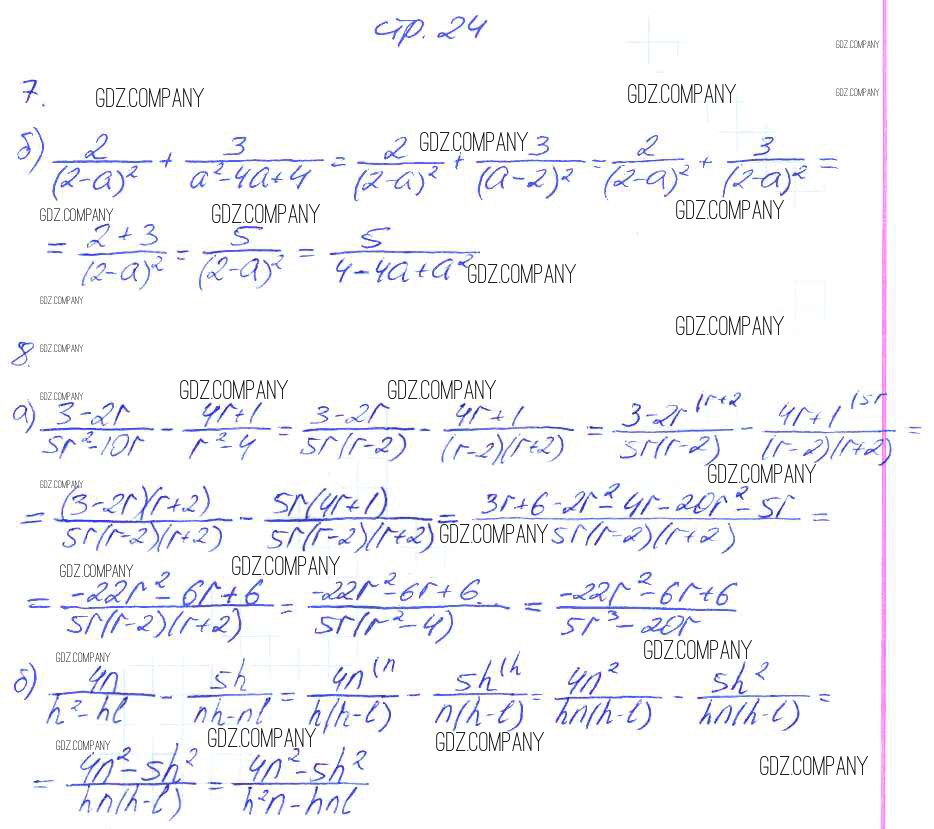 стр. 24
GDZ.COMPANY
7. GDZ.COMPANY GDZ.COMPANY GDZ.COMPANY
GDZ.COMPANY
б) 2/(2-a)² + 3/(a²-4a+4) = 2/(2-a)² + 3/(a-2)² = 2/(2-a)² + 3/(2-a)² =
GDZ.COMPANY GDZ.COMPANY GDZ.COMPANY
= (2+3)/(2-a)² = 5/(2-a)² = 5/(4-4a+a²)
GDZ.COMPANY
GDZ.COMPANY
GDZ.COMPANY
8. GDZ.COMPANY
GDZ.COMPANY GDZ.COMPANY GDZ.COMPANY
а) (3-2r)/(5r²-10r) - (4r+1)/(r²-4) = (3-2r)/(5r(r-2)) - (4r+1)/((r-2)(r+2)) = (3-2r)/(5r(r-2)) (r+2 - (4r+1)/((r-2)(r+2)) (5r =
GDZ.COMPANY
GDZ.COMPANY
= (3-2r)(r+2)/(5r(r-2)(r+2)) - 5r(4r+1)/(5r(r-2)(r+2)) = (3r+6-2r²-4r-20r²-5r)/(5r(r-2)(r+2)) =
GDZ.COMPANY
GDZ.COMPANY GDZ.COMPANY
= (-22r²-6r+6)/(5r(r-2)(r+2)) = (-22r²-6r+6)/(5r(r²-4)) = (-22r²-6r+6)/(5r³-20r)
GDZ.COMPANY GDZ.COMPANY
б) 4n/(h²-hl) - 5h/(nh-nl) = 4n/(h(h-l)) (n - 5h/(n(h-l)) (h = 4n²/(hn(h-l)) - 5h²/(hn(h-l)) =
GDZ.COMPANY GDZ.COMPANY GDZ.COMPANY
= (4n²-5h²)/(hn(h-l)) = (4n²-5h²)/(h²n-hnl)
GDZ.COMPANY